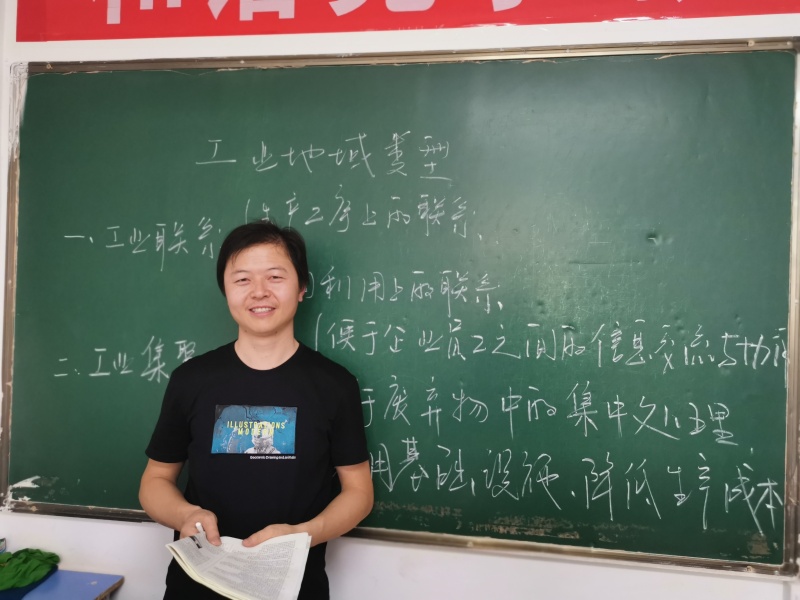 工业地域类型
一、工业联系 生产工序上的联系、
利用上的联系
便于企业员工之间的信息交流与协
二、工业集聚
于废弃物中的集中处理
用基础设施、降低生产成本
ILLUSTRATIONS